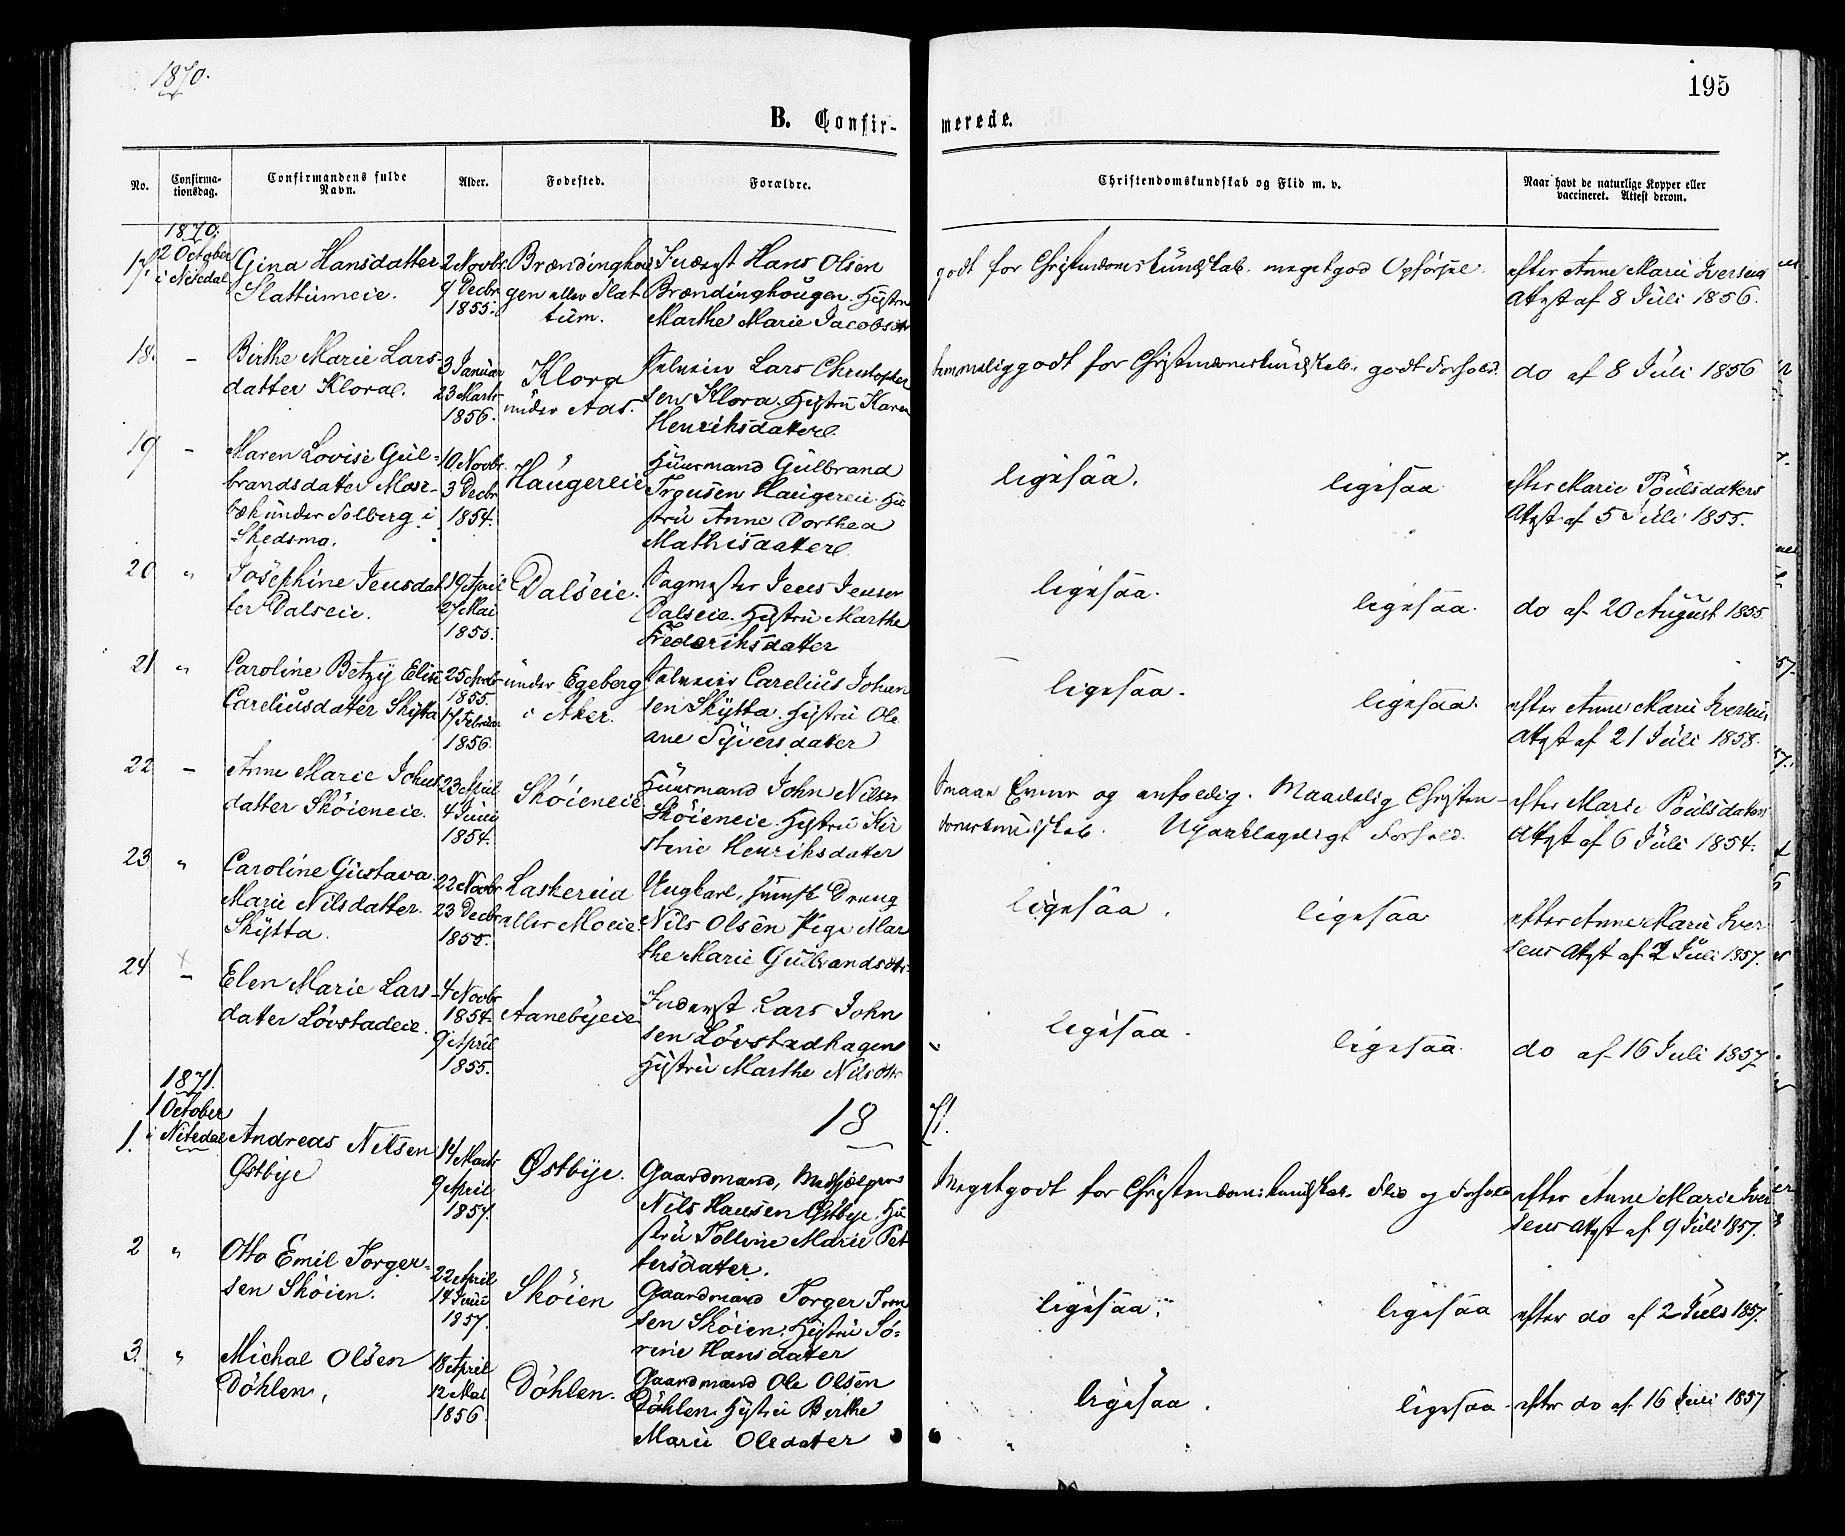 1870.
195
B. Confir-
merede.
No.
Confirma-
tionsdag.
Confirmandens fulde
Navn.
Alder.
Fødested.
Forældre.
Christendomskundskab og Flid m. v.
Naar havt de naturlige Kopper eller
vaccineret. Attest derom.
1870.
17
2 October
i Nitedal
Gina Hansdatter
Slattumeie.
2 Novbr.
9 Decbr
1855.
Brændinghou
gen eller Slat
tum.
Inderst Hans Olsen
Brændinghougen. Hustru
Marthe Marie Jacobsdtr
godt for Christendomskundskab. megetgod Opførsel.
efter Anne Marie Iversens
Attest af 8 Juli 1856.
18.
-
Birthe Marie Lars-
datter Klora.
3 Januar
23 Marts
1856.
Klora
under Aas.
Selveier Lars Christopher
sen Klora. Hustru Karen
Henriksdatter
temmeliggodt for Christendomskundskab. godt Forhold.
do af 8 Juli 1856
19
-
Maren Lovise Gul-
brandsdatter Mær-
bæk under Solberg i
Skedsmo.
10 Novbr.
3 Decbr
1854.
Haugereie
Huusmand Gulbrand
Haugereie. Hu
stru Anne Dorthea
Mathisdatter
ligesaa.
ligesaa
efter Marie Poulsdaters
Attest af 5 Juli 1855.
20
"
Josephine Jensdat
ter Dalseie.
19 April
27 Mai
1855.
Dalseie.
Sagmester Jens Jensen
Dalseie. Hustru Marthe
Frederiksdatter
ligesaa.
ligesaa.
do af 20 August 1855
21
"
Caroline Betzy Elise
Careliusdatter Skytta
25 Novbr
1855.
17 Februar
1856.
under Egeberg
i Aker.
Selveier Carelius Johan
sen Skytta. Hustru Ole
ane Syversdater
ligesaa.
ligesaa.
efter Anne Marie Iversens
Attest af 21 Juli 1858.
22
-
Anne Marie Johns
datter Skøieneie.
23 April
4 Juni
1854.
Skøieneie
Huusmand John Nilsen
Skøieneie. Hustru Kir
stine Henriksdater
Smaae Evner og enfoldig. Maadelig Christen-
domskundskab. Upaaklageligt Forhold.
efter Marie Poulsdaters
Attest af 6 Juli 1854.
23
"
Caroline Gustava
Marie Nilsdatter
Skytta.
22 Novbr
23 Decbr
1855.
Laskereia
eller Moeie.
Ungkarl, svensk Dreng
Nils Olsen Pige Mar
the Marie Gulbrandsdtr.
ligesaa.
ligesaa
efter Anne Marie Iver
sens Attest af 2 Juli 1857.
24
-
Elen Marie Lars-
dater Løvstadeie.
4 Novbr
1854.
9 April
1855.
Aanebyeie
Inderst Lars John
sen Løvstadhagen
Hustru Marthe Nilsdtr
ligesaa.
ligesaa.
do af 16 Juli 1857
1871.
18
71.
1.
1 October
i Nitedal
Andreas Nilsen
Østbye
14 Marts
9 April
1857.
Østbye.
Gaardmand, Medhjælper
Nils Hansen Østbye. Hu
stru Tolline Marie Pet
tersdater.
Megetgodt for Christendomskundskab Flid og Forhold
efter Anne Marie Iver
sens Attest af 9 Juli 1857.
2
"
Otto Emil Torger-
sen Skøien.
22 April
14 Juni
1857.
Skøien
Gaardmand Torger Iver
sen Skøien. Hustru Sø-
rine Hansdater
ligesaa.
ligesaa
efter do af 2 Juli 1857.
3.
"
Michal Olsen
Døhlen.
18 April
12 Mai
1856.
Døhlen.
Gaardmand Ole Olsen
Døhlen. Hustru Berthe
Marie Olsdater
ligesaa.
ligesaa.
efter do af 16 Juli 1857